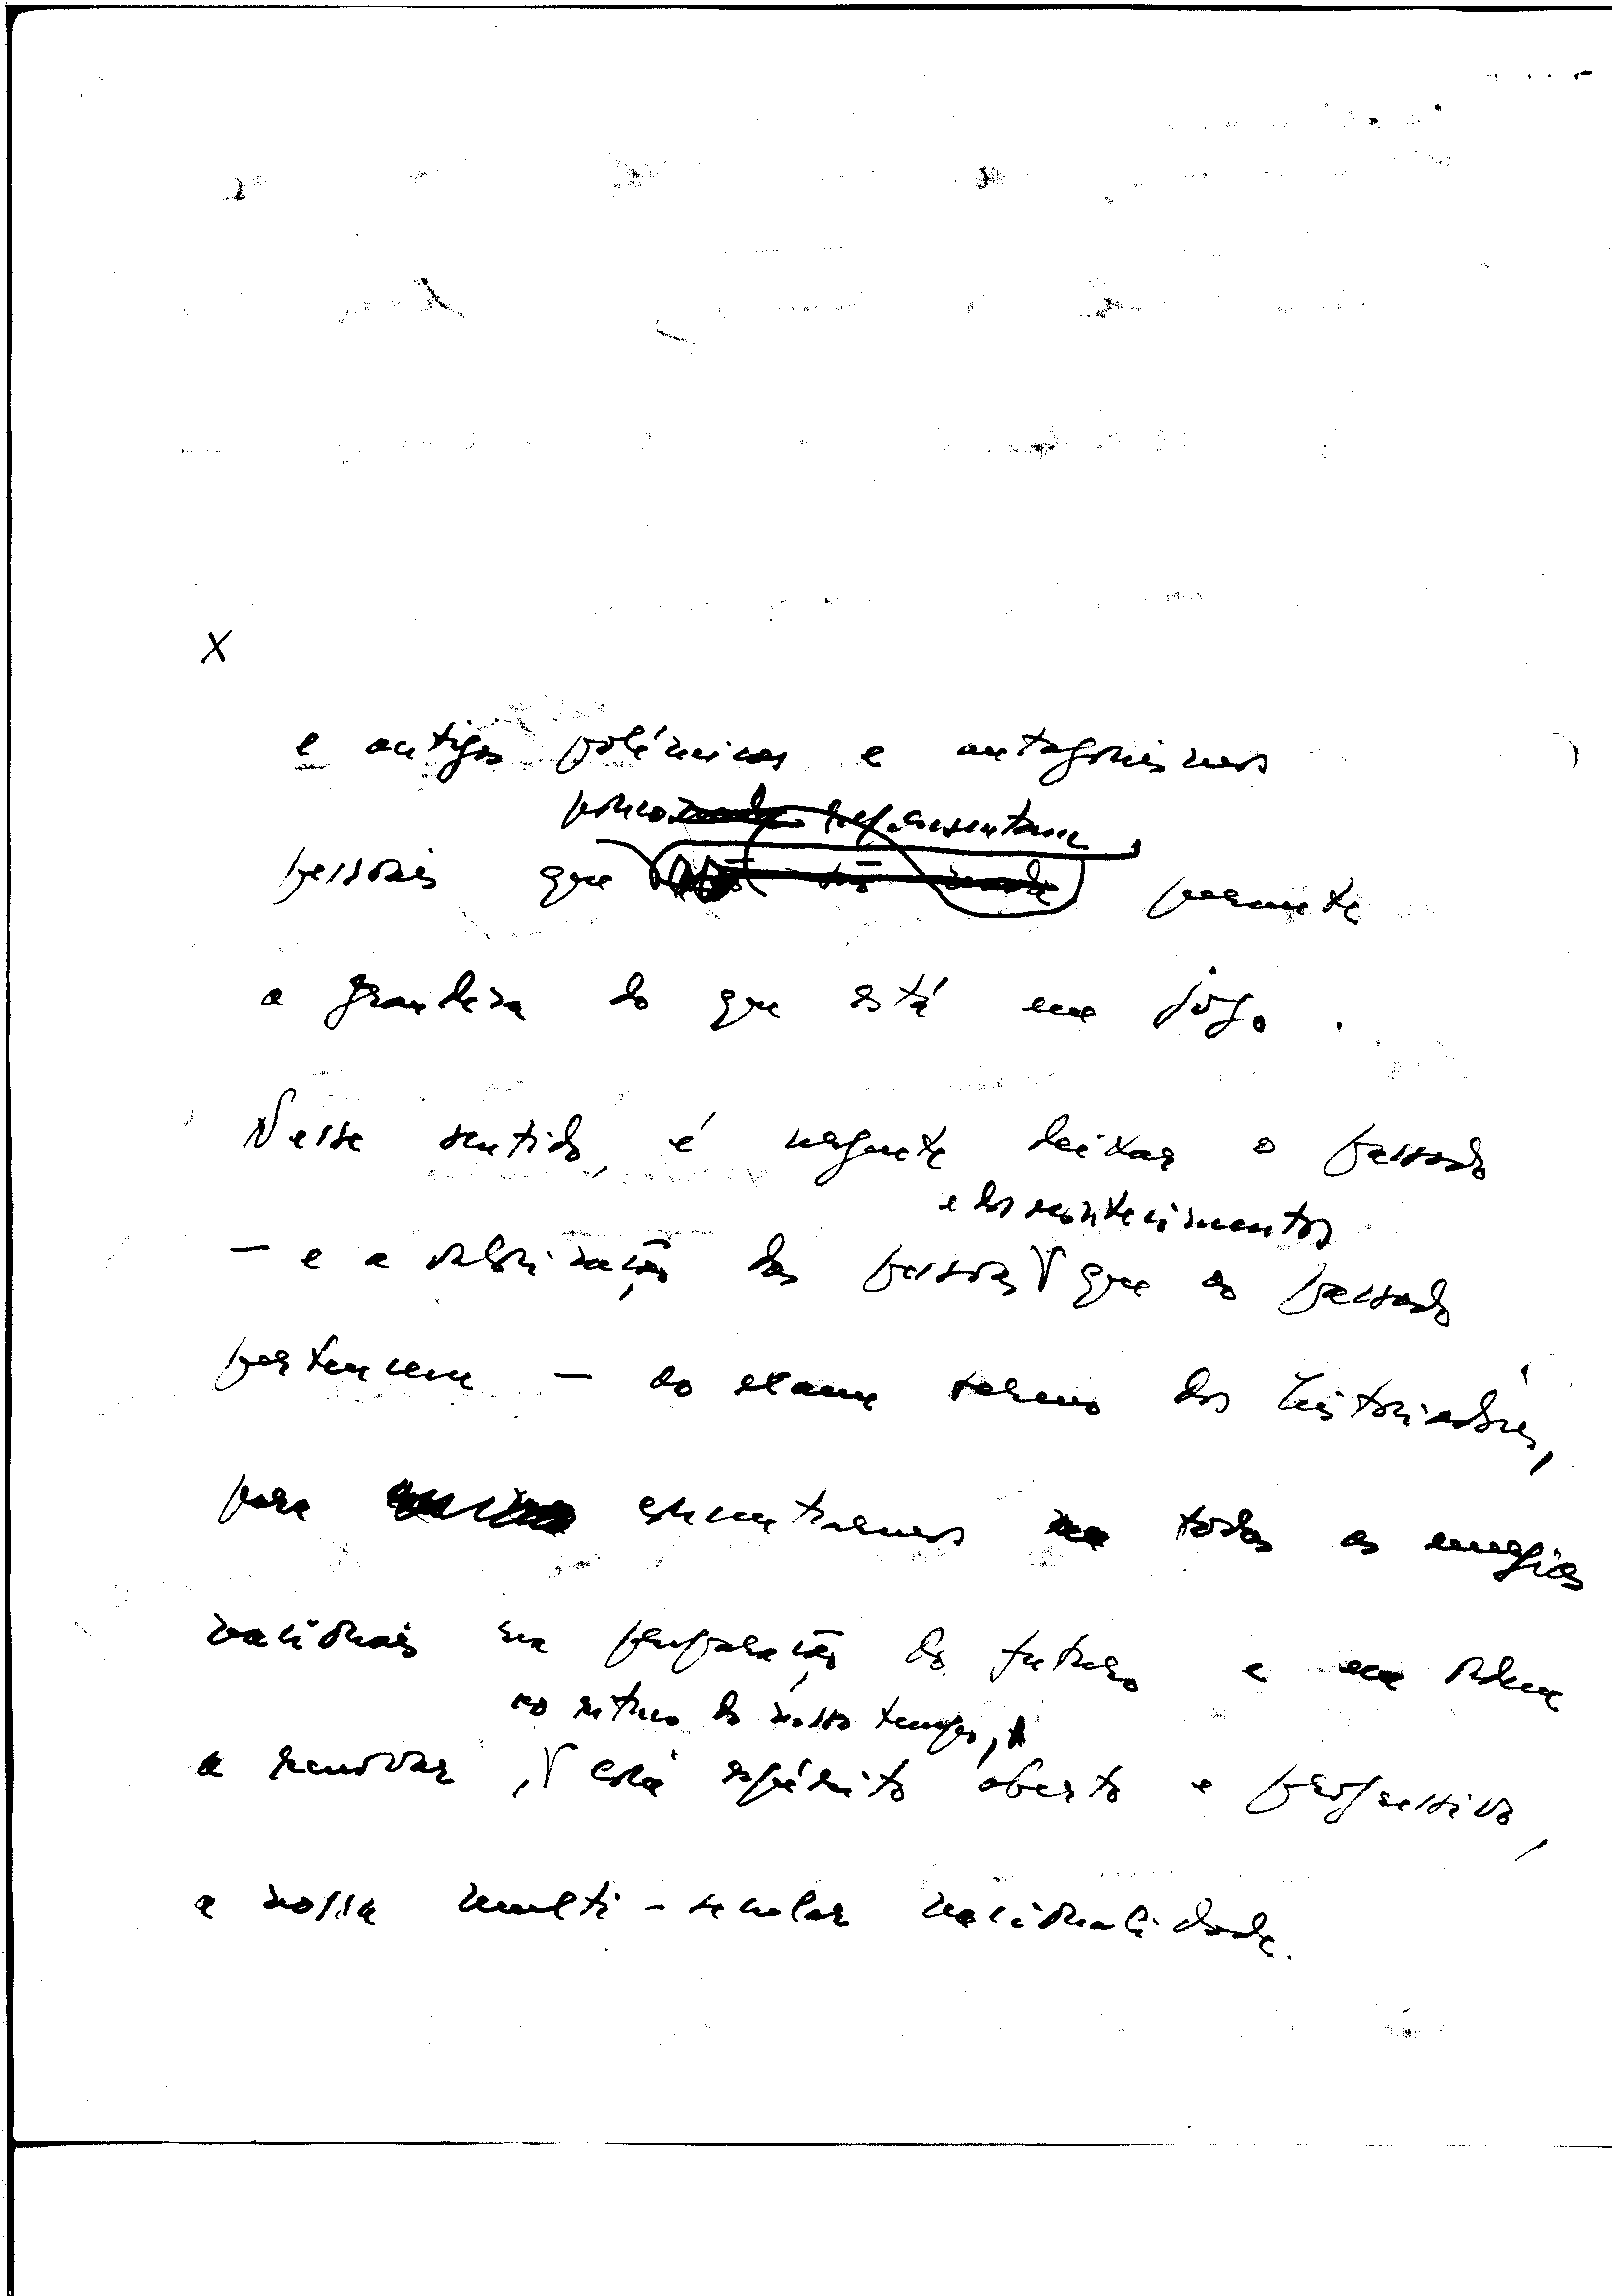 X
e antigas polémicas e antagonismos
pouco representam,
pessoais que perante
a grandeza do que está em jogo.
Nesse sentido, é urgente deixar o passado
e dos acontecimentos
— e a valorização das pessoas que ao passado
pertencem — ao exame sereno dos historiadores,
para concentrarmos todas as energias
nacionais na preparação do futuro e em ordem
ao ritmo do nosso tempo,
a renovar, com espírito aberto e progressivo,
a nossa multi-secular nacionalidade.